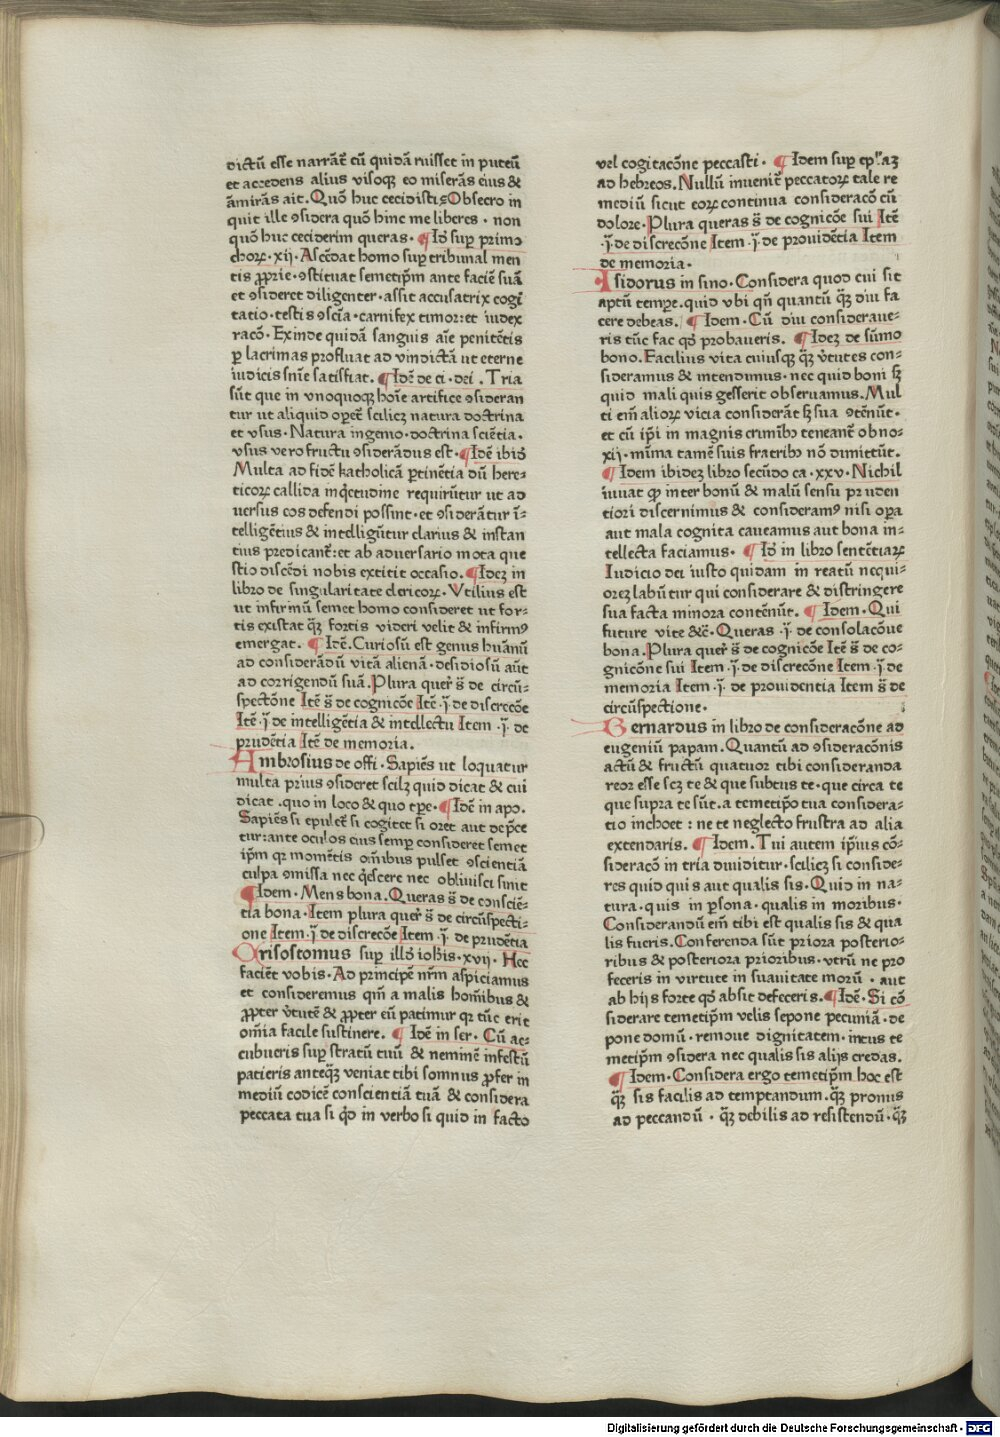 dictū esse narrāt̄ cū quidā ruisset in puteū
et accedens alius visoq̄ eo miserās eius &
āmirās ait. Quō huc cecidisti; Obsecro in
quit ille ꝯsidera quō hinc me liberes · non
quō huc ceciderim queras · ¶ Id̄ sup̄ primo
choꝝ · xij · Ascēdat homo sup̄ tribunal men
tis ꝓprie · ꝯstituat semetip̄m ante faciē suā
et ꝯsideret diligenter · assit accusatrix cogi
tatio · testis ꝯscīa · carnifex timor: et iudex
racō · Exinde quidā sanguis aīe penitētis
ꝑ lacrimas profluat ad vindictā ut eterne
iudicis snīe satisfiat. ¶ Idē de ci · dei . Tria
sūt que in vnoquoq̄ hoīe artifice ꝯsideran
tur ut aliquid oꝑet̄ scilicꝫ natura doctrina
et vsus · Natura ingenio · doctrina sciētia ·
vsus vero fructu ꝯsiderādus est · ¶ Idē ibid̄
Multa ad fidē katholicā ꝑtinētia dū here⸗
ticoꝝ callida inq̇etudine requirūtur ut ad
uersus eos defendi possint · et ꝯsiderātur ī⸗
telligētius & intelligūtur clarius & instan
tius predicant̄: et ab aduersario mota que
stio discēdi nobis extitit occasio. ¶ Ideꝫ in
libro de singularitate clericoꝝ · Vtilius est
ut infirmū semet homo consideret ut for⸗
tis existat q̄ꝫ fortis videri velit & infirmꝯ
emergat. ¶ Idē. Curiosū est genus huānū
ad considerādū vitā alienā · desidiosū aūt
ad corrigendū suā. Plura quer̄ s̄ de circū⸗
spectōne Itē s̄ de cognicōe Itē · j̄ · de discrecōe
Itē · j̄ · de intelligētia & intellectu Item · j̄ · de
prudētia Itē de memoria.
Ambrosius de offi · Sapiēs ut loquatur
multa prius ꝯsideret scilꝫ quid dicat & cui
dicat · quo in loco & quo tp̄e · ¶ Idē in apo.
Sapiēs si epulet̄ si cogitet si oret aut dep̄ce
tur: ante oculos eius semp̄ consideret semet
ip̄m qꝛ momētis om̄ibus pulset ꝯscientiā
culpa ꝯmissa nec q̇escere nec obliuisci sinit
¶ Idem · Mens bona. Queras s̄ de consciē⸗
tia bona · Item plura quer̄ s̄ de circūspecti⸗
one Item · j̄ · de discrecōe Item · j̄ · de prudētia
Crisostomus sup̄ illd̄ ioh̄is · xvij · Hec
faciēt vobis · Ad principē nr̄m aspiciamus
et consideremus qm̄ a malis hom̄ibus &
ꝓpter v̄tutē & ꝓpter eū patimur qꝛ tūc erit
om̄ia facile sustinere. ¶ Idē in ser · Cū ac⸗
cubueris sup̄ stratū tuū & neminē infestū
patieris anteq̄ꝫ veniat tibi somnus ꝓfer in
mediū codicē conscientiā tuā & considera
peccata tua si q̇d in verbo si quid in facto
vel cogitacōne peccasti · ¶ Idem sup̄ ep̄laꝫ
ad hebreos. Nullū inuenit̄ peccatoꝝ tale re
mediū sicut eoꝝ continua consideracō cū
dolore · Plura queras s̄ de cognicōe sui Itē
· j̄ · de discrecōne Item · j̄ · de prouidētia Item
de memoria ·
Isidorus in sino · Considera quod cui sit
aptū temꝑe. quid vbi qn̄ quantū q̄ꝫ diu fa
cere debeas. ¶ Idem · Cū diu consideraue⸗
ris tūc fac qd̄ probaueris. ¶ Ideꝫ de sūmo
bono. Facilius vita cuiusq̄ q̄ꝫ v̄tutes con⸗
sideramus & intendimus · nec quid boni sꝫ
quid mali quis gesserit obseruamus. Mul
ti em̄ alioꝝ vicia considerāt sꝫ sua ꝯtēnūt ·
et cū ip̄i in magnis criminib̄ teneant̄ obno⸗
xij · mīma tamē suis fratrib̄ nō dimittūt.
¶ Idem ibideꝫ libro secūdo ca · xxv · Nichil
iuuat qꝫ inter bonū & malū sensu pruden
tiori discernimus & consideramꝰ nisi oꝑa
aut mala cognita caueamus aut bona in⸗
tellecta faciamus · ¶ Id̄ in libro sentētiaꝝ
Iudicio dei iusto quidam in reatū nequi⸗
oreꝫ labūtur qui considerare & distringere
sua facta minora contēnūt. ¶ Idem · Qui
future vite &c̄ · Queras · j̄ · de consolacōne
bona. Plura quer̄ s̄ de cognicōe Itē s̄ de co⸗
gnicōne sui Item · j̄ · de discrecōne Item · j̄ · de
memoria Item · j̄ · de prouidentia Item s̄ de
circūspectione ·
Bernardus in libro de consideracōne ad
eugeniū papam. Quantū ad ꝯsideracōnis
actū & fructū quatuor tibi consideranda
reor esse scꝫ te & que subtus te · que circa te
que supra te sūt. a temetip̄o tua considera⸗
tio inchoet : ne te neglecto frustra ad alia
extendaris. ¶ Idem. Tui autem ip̄ius cō⸗
sideracō in tria diuiditur · scilicꝫ si conside⸗
res quid quis aut qualis sis. Quid in na⸗
tura · quis in ꝑsona · qualis in moribus ·
Considerandū em̄ tibi est qualis sis & qua
lis fueris. Conferenda sūt priora posterio⸗
ribus & posteriora prioribus · vtrū ne pro
feceris in virtute in suauitate morū · aut
ab hijs forte qd̄ absit defeceris. ¶ Idē · Si cō
siderare temetip̄m velis sepone pecuniā · de
pone domū · remoue dignitatem · intus te
metip̄m ꝯsidera nec qualis sis alijs credas.
¶ Idem · Considera ergo temetip̄m hoc est
q̄ꝫ sis facilis ad temptandum. q̄ꝫ pronus
ad peccandū · q̄ꝫ debilis ad resistendū · q̄ꝫ
Digitalisierung gefördert durch die Deutsche Forschungsgemeinschaft - DFG